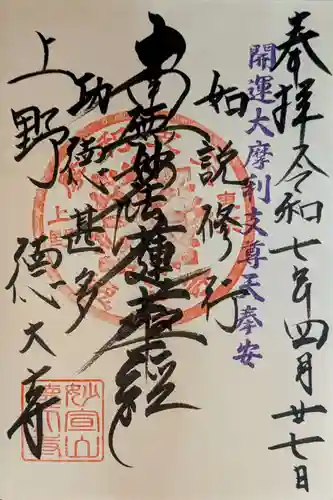 奉拝
令和七年四月廿七日
開運大摩利支尊天奉安
如説修行
南無妙法蓮華経
功徳甚多
上野
徳大寺